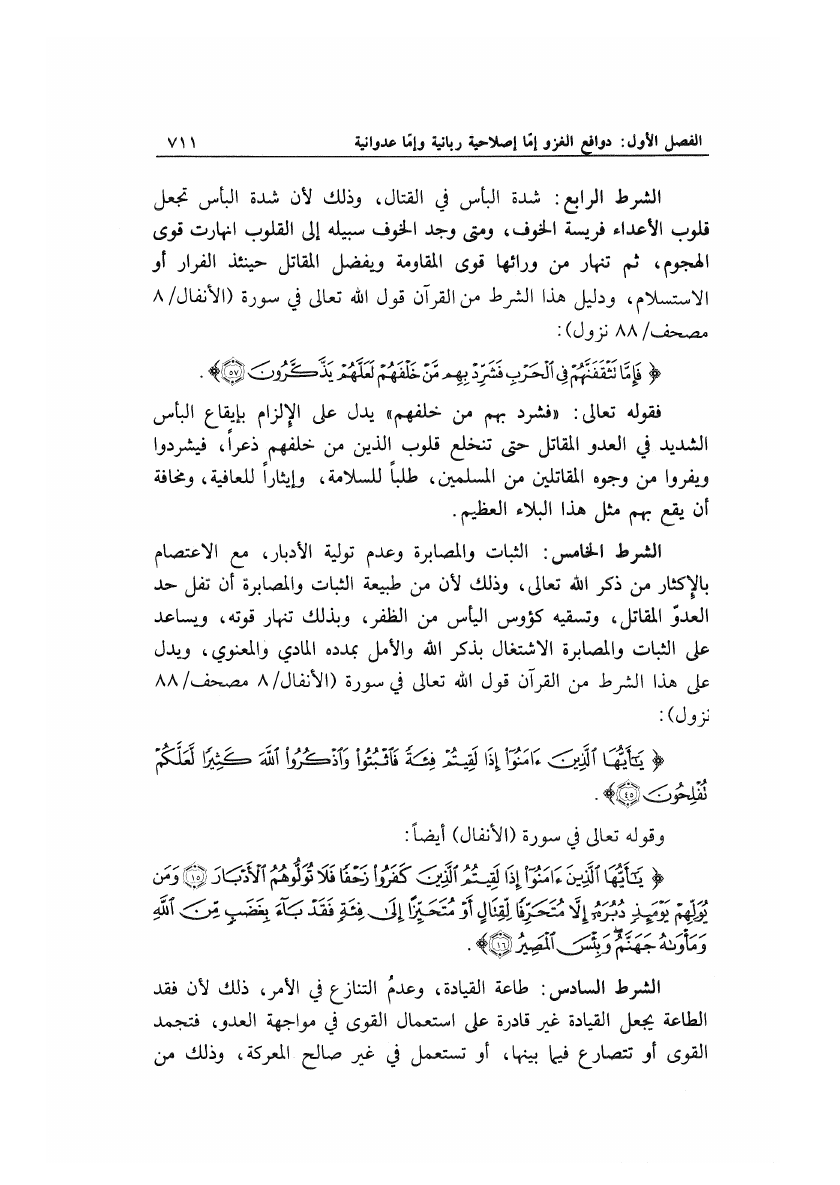 الفصل الأول: دوافع الغزو إمّا إصلاحية ربانية وإمّا عدوانية ٧١١
الشرط الرابع: شدة البأس في القتال، وذلك لأن شدة البأس تجعل
قلوب الأعداء فريسة الخوف، ومتى وجد الخوف سبيله إلى القلوب انهارت قوى
الهجوم، ثم تنهار من ورائها قوى المقاومة ويفضل المقاتل حينئذ الفرار أو
الاستسلام، ودليل هذا الشرط من القرآن قول الله تعالى في سورة (الأنفال/ ٨
مصحف/ ٨٨ نزول):
﴿ فَإِمَّا نَثْقَفَنَّهُمْ فِي ٱلْحَرْبِ فَشَرِّدْ بِهِم مَّنْ خَلْفَهُمْ لَعَلَّهُمْ يَذَّكَّرُونَ ۝٥٧﴾ .
فقوله تعالى: «فشرد بهم من خلفهم» يدل على الإلزام بإيقاع البأس
الشديد في العدو المقاتل حتى تنخلع قلوب الذين من خلفهم ذعراً، فيشردوا
ويفروا من وجوه المقاتلين من المسلمين، طلباً للسلامة، وإيثاراً للعافية، ومخافة
أن يقع بهم مثل هذا البلاء العظيم.
الشرط الخامس: الثبات والمصابرة وعدم تولية الأدبار، مع الاعتصام
بالإكثار من ذكر الله تعالى، وذلك لأن من طبيعة الثبات والمصابرة أن تفل حد
العدوّ المقاتل، وتسقيه كؤوس اليأس من الظفر، وبذلك تنهار قوته، ويساعد
على الثبات والمصابرة الاشتغال بذكر الله والأمل بمدده المادي والمعنوي، ويدل
على هذا الشرط من القرآن قول الله تعالى في سورة (الأنفال/ ٨ مصحف/ ٨٨
نزول):
﴿ يَٰٓأَيُّهَا ٱلَّذِينَ ءَامَنُوٓا۟ إِذَا لَقِيتُمْ فِئَةً فَٱثْبُتُوا۟ وَٱذْكُرُوا۟ ٱللَّهَ كَثِيرًا لَّعَلَّكُمْ
نُفْلِحُونَ ۝٤٥﴾ .
وقوله تعالى في سورة (الأنفال) أيضاً:
﴿ يَٰٓأَيُّهَا ٱلَّذِينَ ءَامَنُوٓا۟ إِذَا لَقِيتُمُ ٱلَّذِينَ كَفَرُوا۟ زَحْفًا فَلَا تُوَلُّوهُمُ ٱلْأَدْبَارَ ۝١٥ وَمَن
يُوَلِّهِمْ يَوْمَئِذٍ دُبُرَهُۥٓ إِلَّا مُتَحَرِّفًا لِّقِتَالٍ أَوْ مُتَحَيِّزًا إِلَىٰ فِئَةٍ فَقَدْ بَآءَ بِغَضَبٍ مِّنَ ٱللَّهِ
وَمَأْوَىٰهُ جَهَنَّمُ وَبِئْسَ ٱلْمَصِيرُ ۝١٦﴾ .
الشرط السادس: طاعة القيادة، وعدمُ التنازع في الأمر، ذلك لأن فقد
الطاعة يجعل القيادة غير قادرة على استعمال القوى في مواجهة العدو، فتجمد
القوى أو تتصارع فيما بينها، أو تستعمل في غير صالح المعركة، وذلك من